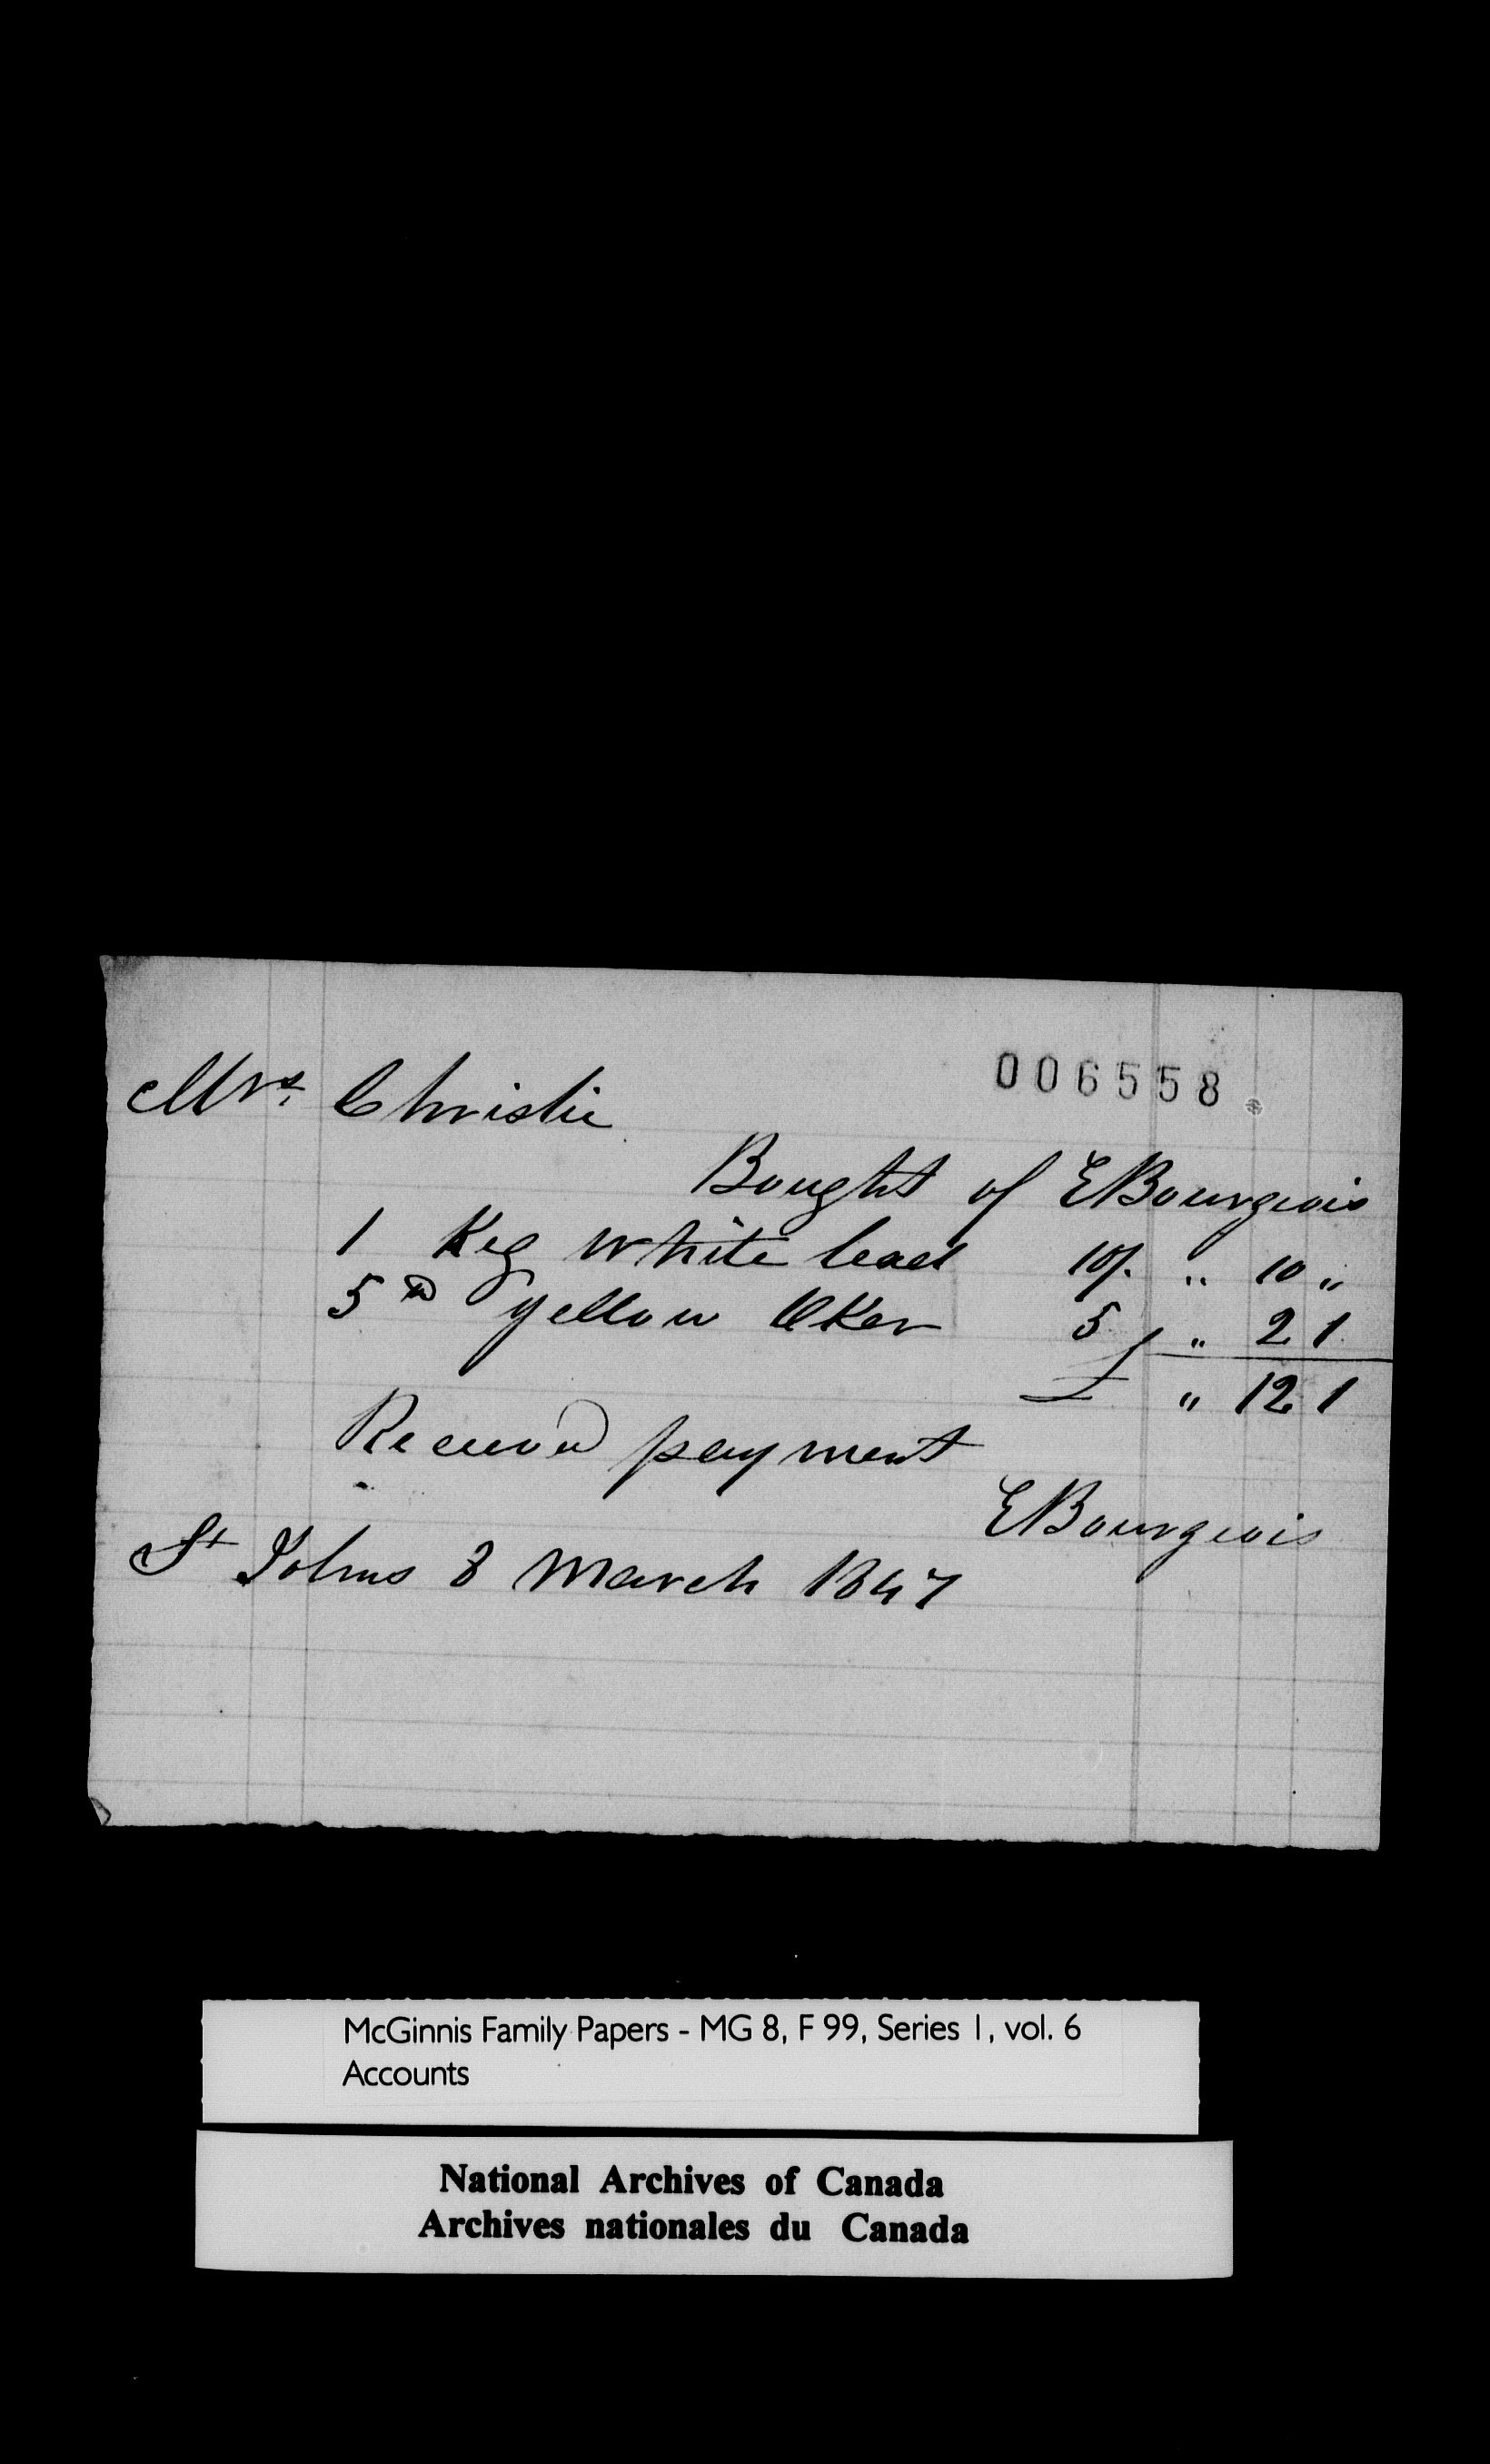 006558
Mrs. Christie
Bought of E Bourgeois
1 Keg White lead 10/. " 10 "
5 lb yellow Oker 5 " 2 1
£ " 12 1
Received payment
E Bourgeois
St Johns 8 March 1847
McGinnis Family Papers - MG 8, F 99, Series 1, vol. 6
Accounts
National Archives of Canada
Archives nationales du Canada